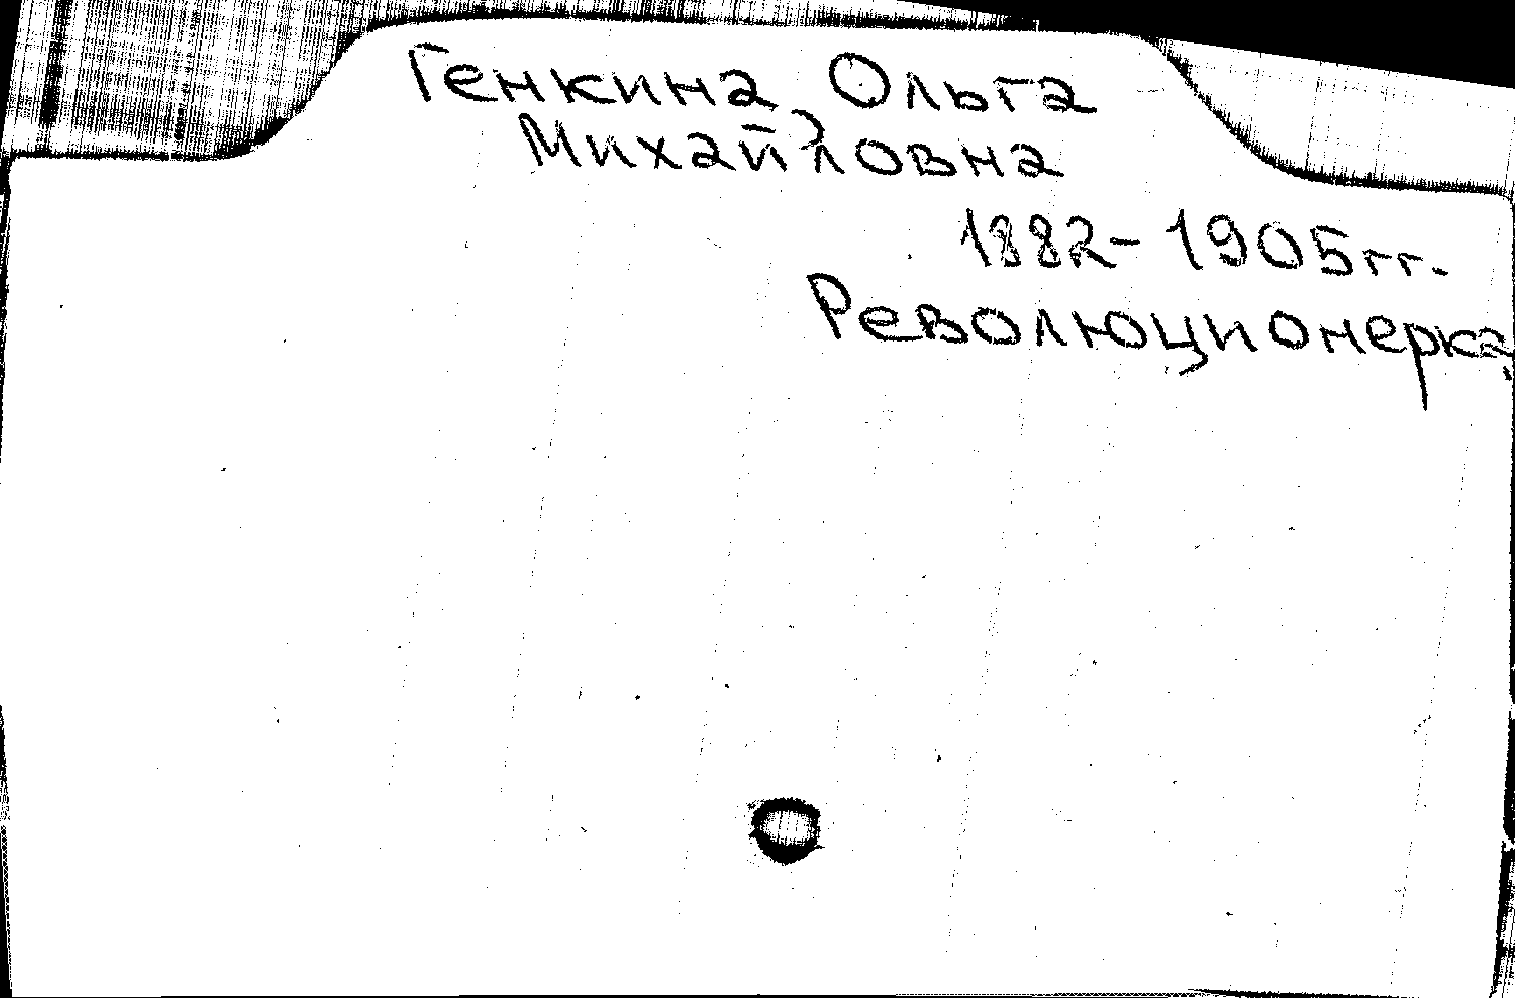 Генкина, Ольга
Михайловна
1882-1905гг.
Революционерка,